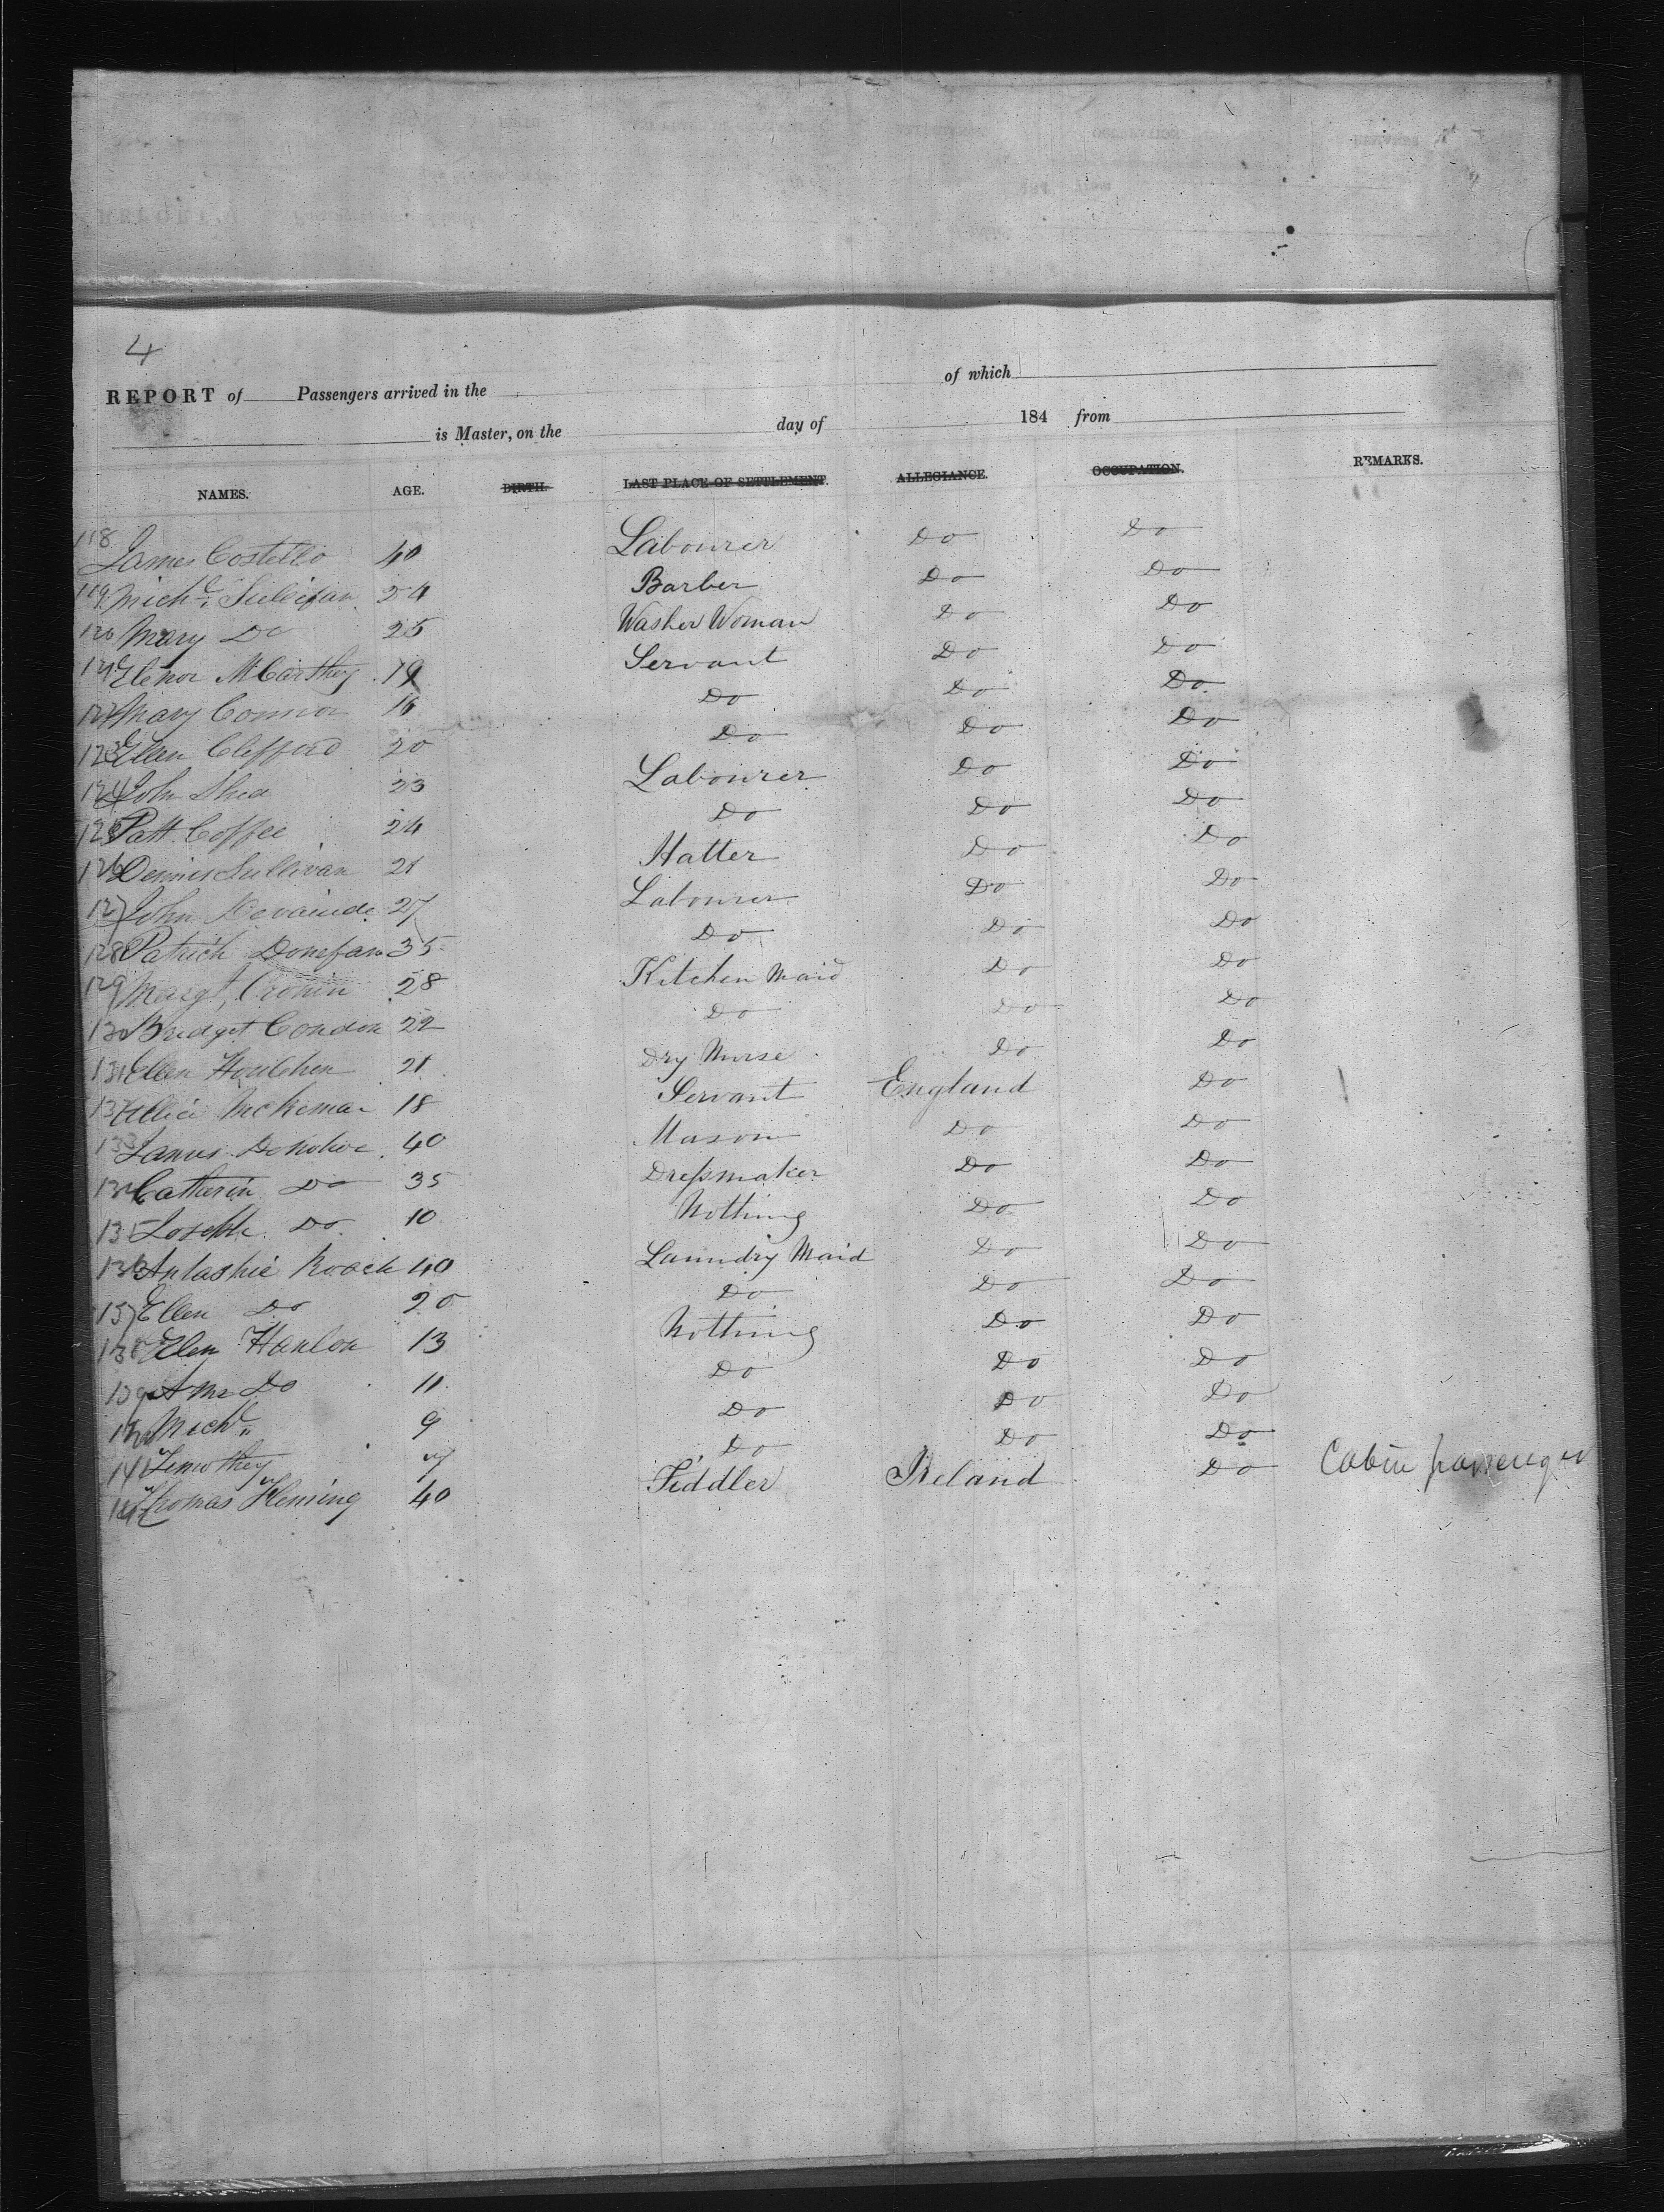 4
REPORT of Passengers arrived in the of which
is Master, on the day of 184 from
NAMES. AGE. BIRTH. LAST PLACE OF SETTLEMENT. ALLEGIANCE. OCCUPATION. REMARKS.
118 James Costello 40 Labourer Do Do
119 Michl. Sullifan 24 Barber Do Do
120 Mary Do 25 Washer Woman Do Do
121 Elenor McCarthey 19 Servant Do Do
122 Mary Connor 16 Do Do Do
123 Ellen Clifford 20 Do Do Do
124 John Shea 23 Labourer Do Do
125 Patt Coffee 24 Do Do Do
126 Dennis Sullivan 21 Hatter Do Do
127 John 27 Labourer Do Do
128 Patrick Donefan 35 Do Do Do
129 Margt. Cronin 28 Kitchen Maid Do Do
130 Bridget Condon 22 Do Do Do
131 Ellen Houlehen 21 Dry Nurse Do Do
132 Allice 18 Servant England Do
133 James Donohoe 40 Mason Do Do
134 Catherin Do 35 Dressmaker Do Do
135 Joseph Do 10 Nothing Do Do
136 Roach 40 Laundry Maid Do Do
137 Ellen Do 20 Do Do Do
138 Ellen Hanlon 13 Nothing Do Do
139 Do 11 Do Do Do
140 Michl " 9 Do Do Do
141 Timothy 7 Do Do Do
142 Thomas Fleming 40 Fiddler Ireland Do Cabin passenger